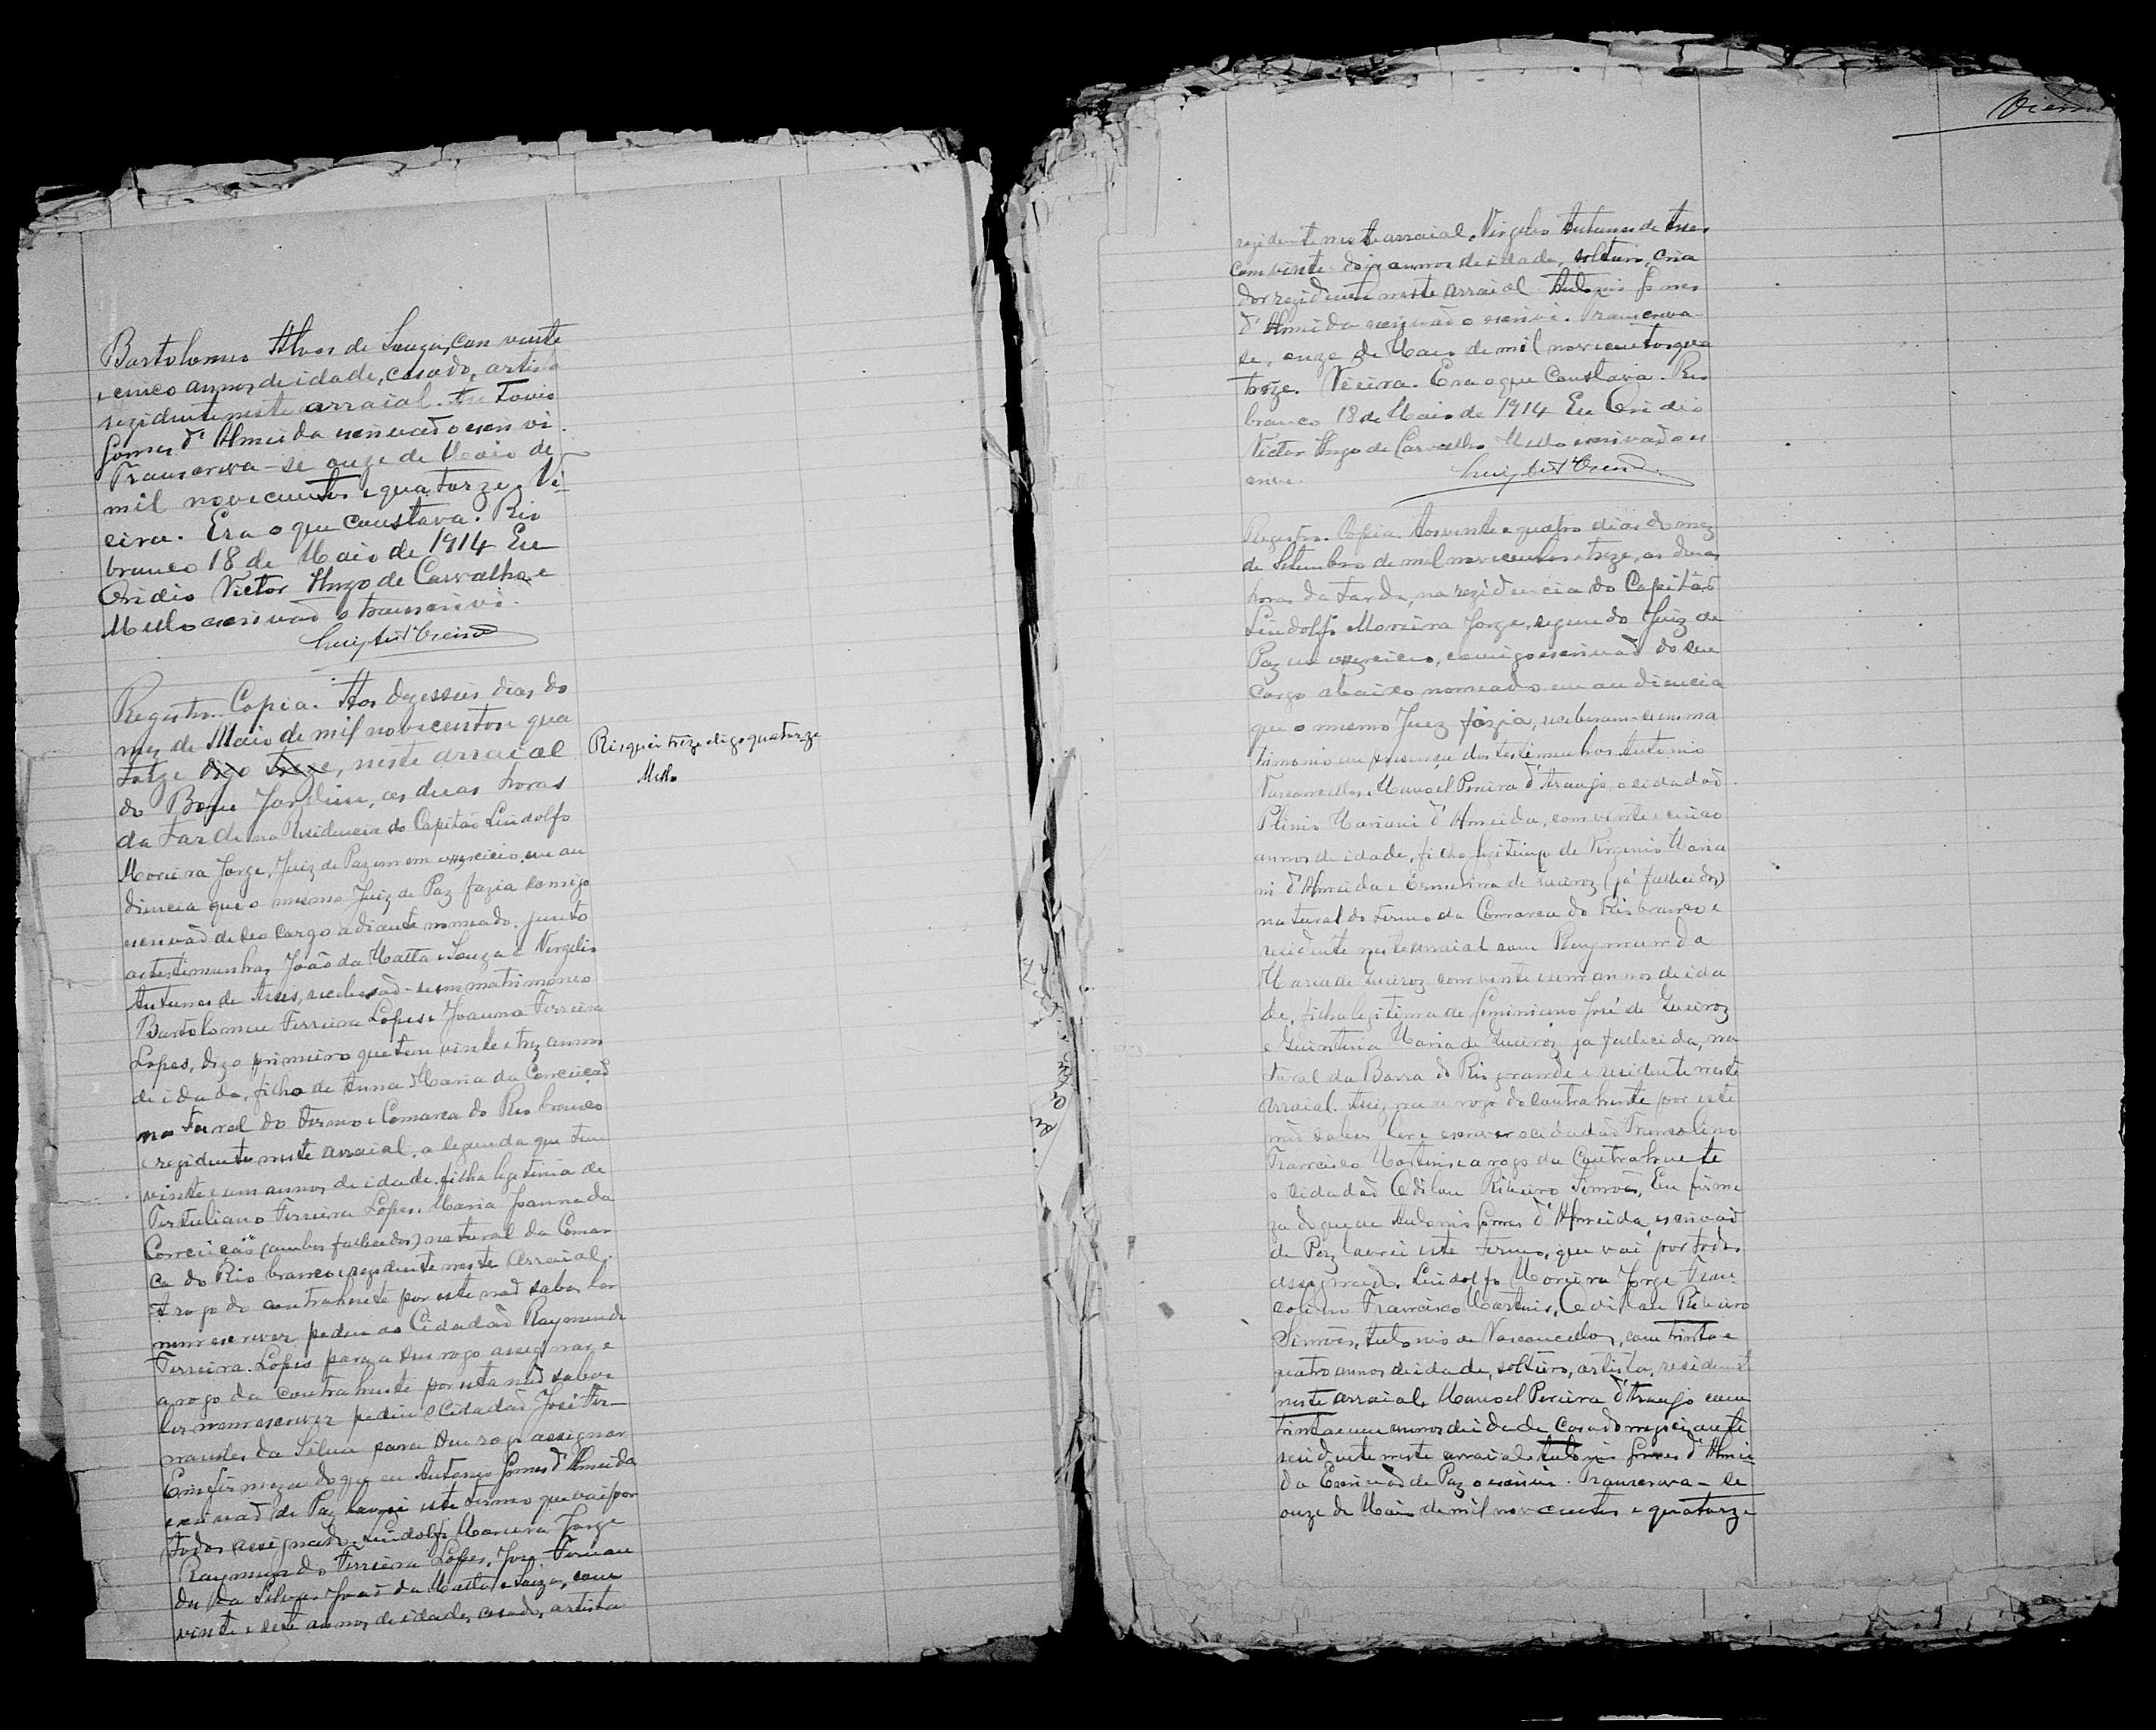 Bartolomeu Alves de Souza, com vinte
e cinco annos de idade, casado, artista
rezidente neste arraial. Antonio
Gomes d'Almeida escrivaõ o escrivi.
Transcreva-se onze de Maio de
mil novecentos e quatorze. Vi-
eira. Era o que constava. Rio
branco 18 de Maio de 1914 Eu
Ovidio Victor Hugo de Carvalho e
Mello escrivaõ o transcrivi.
Luiz Ant Vieira
Registro. Copia. Aos dezesseis dias do
mez de Maio de mil novecentos e qua
torze digo treze, neste arraial
do Bom Jardim, as duas horas
da tarde na Residencia do Capitão Lindolfo
Moreira Jorge, Juiz de Paz em exercicio, em au
diencia que o mesmo Juiz de Paz fazia comigo
escrivaõ de seo cargo adiante nomeado, junto
as testimunhas João da Matta e Souza e Virgilio
Antunes de Assis, receberaõ-se em matrimoneo
Bartolomeu Ferreira Lopes e Joanna Ferreira
Lopes, digo primeiro que tem vinte e trez annos
de idade, filho de Anna Maria da Conceiçaõ
natural do termo e Comarca do Rio branco
e rezidente neste arraial, a segunda que tem
vinte e um annos de idade, filha legitima de
Tertuliano Ferreira Lopes e Maria Joanna da
Conceição (ambos fallecidos) natural da Comar
ca do Rio branco e rezidente neste Arraial.
A rogo do contrahente por este naõ saber ler
nem escrever pediu ao Cidadaõ Raymundo
Ferreira Lopes para a seu rogo assignar e
a rogo da contrahente por esta naõ saber
ler nem escrever pediu o Cidadaõ José Fer-
nandes da Silva para a seu rogo assignar
Em firmeza do que eu Antonio Gomes d'Almeida
escrivaõ de Paz lavrei este termo que vai por
todos assignado. Lindolfo Moreira Jorge
Raymundo Ferreira Lopes, José Fernan
des da Silva. João da Matta e Souza, com
vinte e sete annos de idade, casado, artista
Risquei treze digo quatorze
Mello
Vieira
rezidente neste arraial, Virgilio Antunes de Assis
com vinte e dois annos de idade, solteiro, cria
dor rezidente neste arraial Antonio Gomes
d'Almeida escrivaõ o escrivi. Transcreva-
se, onze de Maio de mil novecentos e qua
torze. Vieira. Era o que constava. Rio
branco 18 de Maio de 1914 Eu Ovidio
Victor Hugo de Carvalho Mello escrivaõ o es
crivi. Luiz Ant Vieira
Registro. Copia. Aos vinte e quatro dias do mez
de Setembro de mil novecentos e treze, as duas
horas da tarde, na rezidencia do Capitão
Lindolfo Moreira Jorge, segundo Juiz de
Paz em exercicio, comigo escrivaõ do seu
cargo abaixo nomeado em audiencia
que o mesmo Juiz fazia, receberam-se em ma
trimonio em presença das testimunhas Antonio
Vasconcellos e Manoel Pereira d'Araujo, o cidadaõ
Plinio Mariani d'Almeida, com vinte e cinco
annos de idade, filho legitimo de Virginio Maria
ni d'Almeida e Ermelina de Queiroz (já fallecidos)
natural do termo da Comarca do Rio branco e
residente neste arraial com Raymunda
Maria de Queiroz com vinte e um annos de ida
de, filha legitima de Geminiano José de Queiroz
e Quintina Maria de Queiroz ja fallecida, na
tural da Barra do Rio grande e residente neste
Arraial. Assigna a rogo do contrahente por este
naõ saber ler e escrever o cidadaõ Francolino
Francisco Martins e a rogo da Contrahente
o Cidadaõ Odilon Ribeiro Simões, Em firme
za do que eu Antonio Gomes d'Almeida, escrivaõ
de Paz lavrei este termo, que vai por todos
assignado. Lindolfo Moreira Jorge Fran-
colino Francisco Martins, Odilon Ribeiro
Simões, Antonio de Vasconcellos, com trinta e
quatro annos de idade, solteiro, artista, residente
neste arraial, Manoel Pereira d'Araujo com
trinta e um annos de idade casado negociante
residente neste arraial Antonio Gomes d'Almei
da Escrivaõ de Paz o escrivi. Transcreva-se
onze de Maio de mil novecentos e quatorze